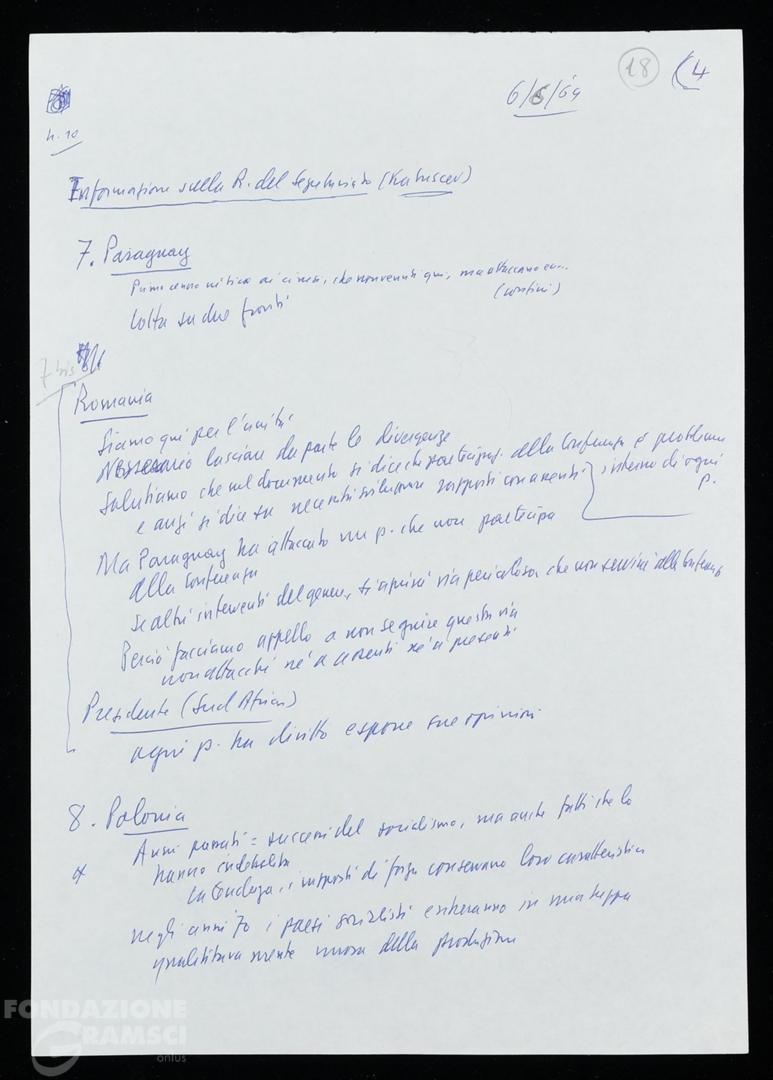 18 (4
6/6/69
h. 10
Informazione sulla R. del Segretariato (Katuscev)
7. Paraguay
Primo cenno critico ai cinesi, che non venuti qui, ma attaccano
(confini)
Lotta su due fronti
7 bis
Romania
Siamo qui per l'unità
Necessario lasciare da parte le divergenze
Salutiamo che nel documento si dice che partecipaz. alla Conferenza è problema
e anzi si dice su necessità sviluppare rapporti con assenti interno di ogni
p.
Ma Paraguay ha attaccato un p. che non partecipa
alla Conferenza
Se altri interventi del genere, si aprirà via pericolosa che non servirà alla Conferenza
Perciò facciamo appello a non seguire questa via
non attacchi né a assenti né a presenti
Presidente (Sud Africa)
ogni p. ha diritto esporre sue opinioni
8. Polonia
Anni passati = successi del socialismo, ma anche fatti che lo
hanno indebolito
La tendenza, i rapporti di forza conservano loro caratteristica
negli anni 70 i paesi socialisti entreranno in una tappa
qualitativamente nuova della produzione
FONDAZIONE
GRAMSCI
onlus